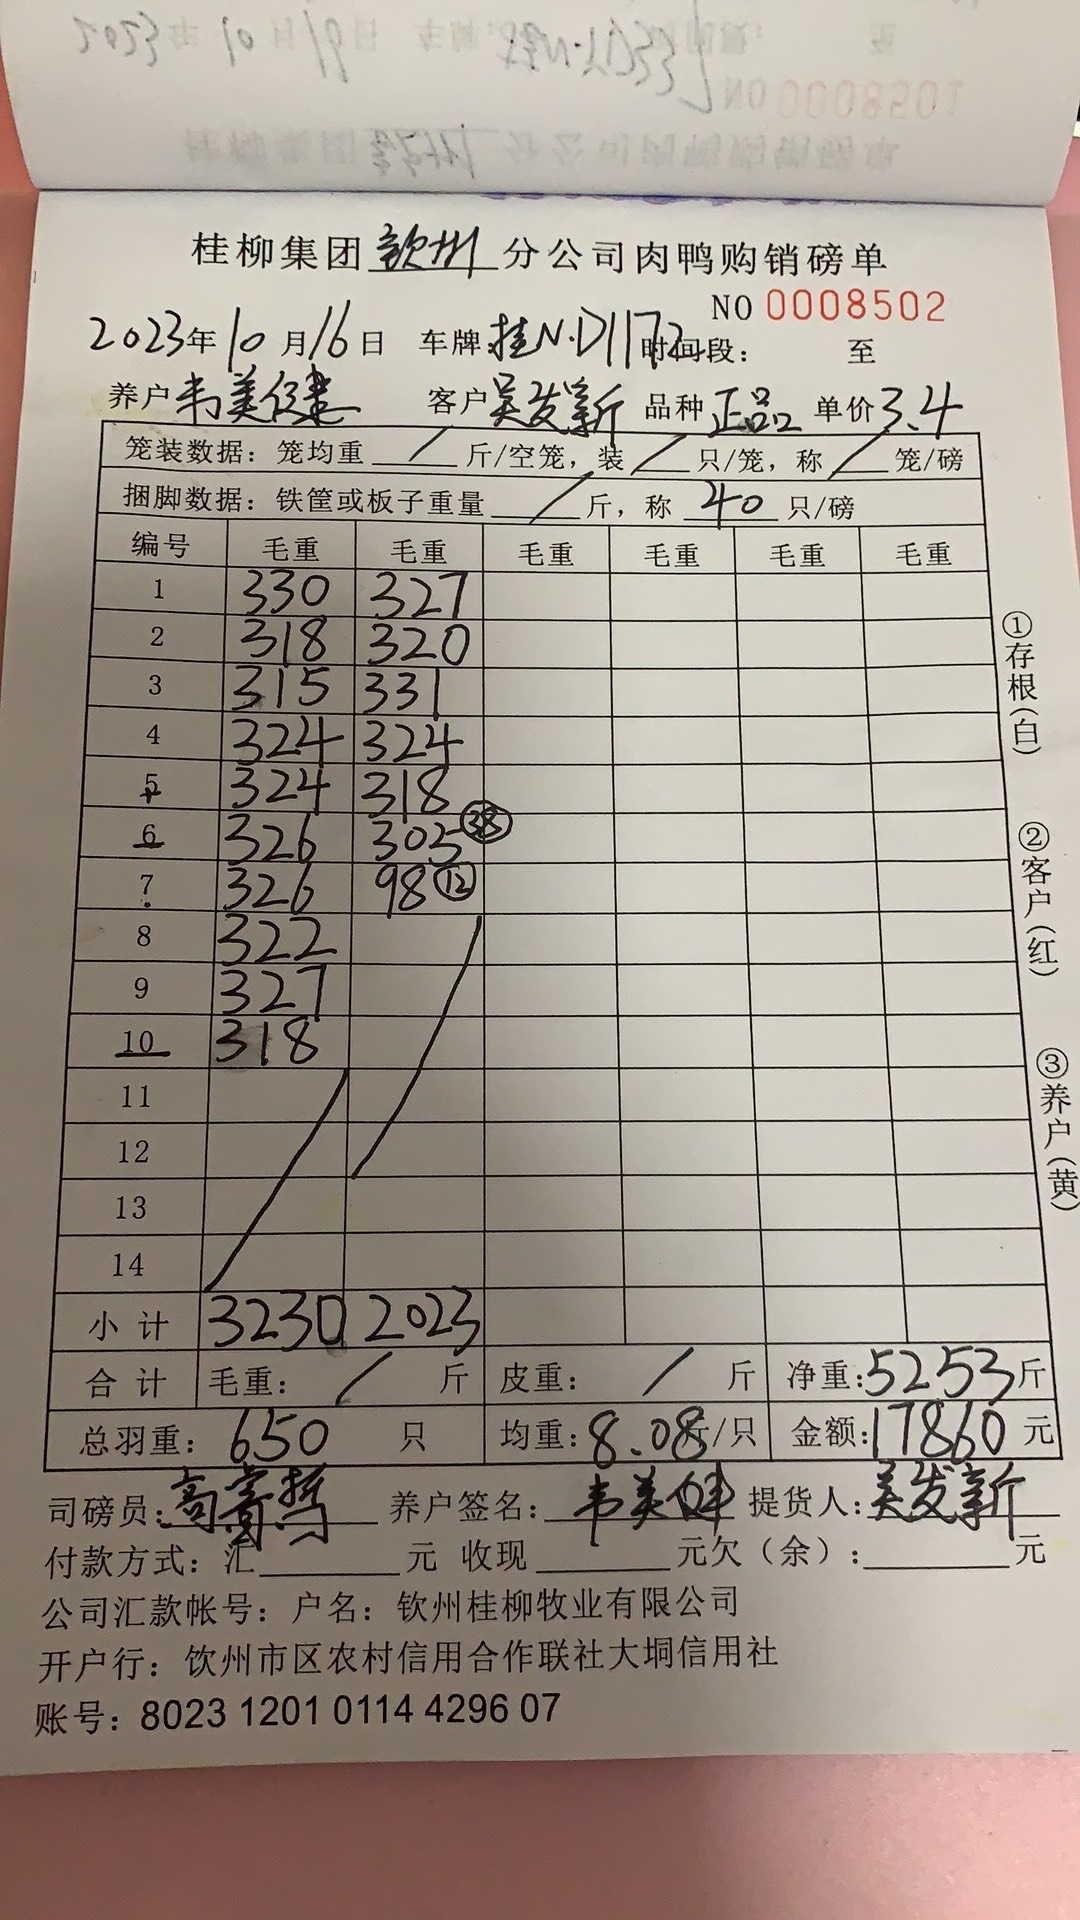 桂柳集团钦州分公司肉鸭购销磅单
NO 0008502
2023年10月16日 车牌:桂N·D1172 时间段: 至
养户韦美健 客户吴发新 品种正品 单价3.4
笼装数据:笼均重 / 斤/空笼,装 / 只/笼,称 / 笼/磅
捆脚数据:铁筐或板子重量 / 斤,称 40 只/磅
编号 毛重 毛重 毛重 毛重 毛重 毛重
1 330 327
2 318 320
3 315 331
4 324 324
5 324 318
6 326 305 38
7 326 98 12
8 322
9 327
10 318
11
12
13
14
小计 3230 2023
合计 毛重: / 斤 皮重: / 斤 净重:5253斤
总羽重: 650 只 均重:8.08斤/只 金额:17860元
司磅员: 养户签名:韦美健 提货人:吴发新
付款方式:汇 元 收现 元欠(余): 元
公司汇款帐号:户名:钦州桂柳牧业有限公司
开户行:钦州市区农村信用合作联社大垌信用社
账号:8023 1201 0114 4296 07
①存根(白)
②客户(红)
③养户(黄)